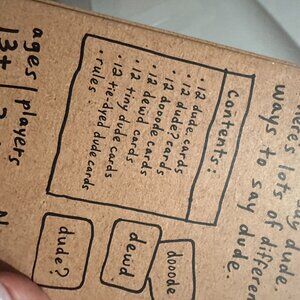 dude.
lots of differen
ways to say dude.
contents:
• 12 dude cards
• 12 dude? cards
• 12 dooode cards
• 12 dewd cards
• 12 tiny dude cards
• 12 tie-dyed dude cards
• rules
dooode
dewd
dude?
ages | players
13+